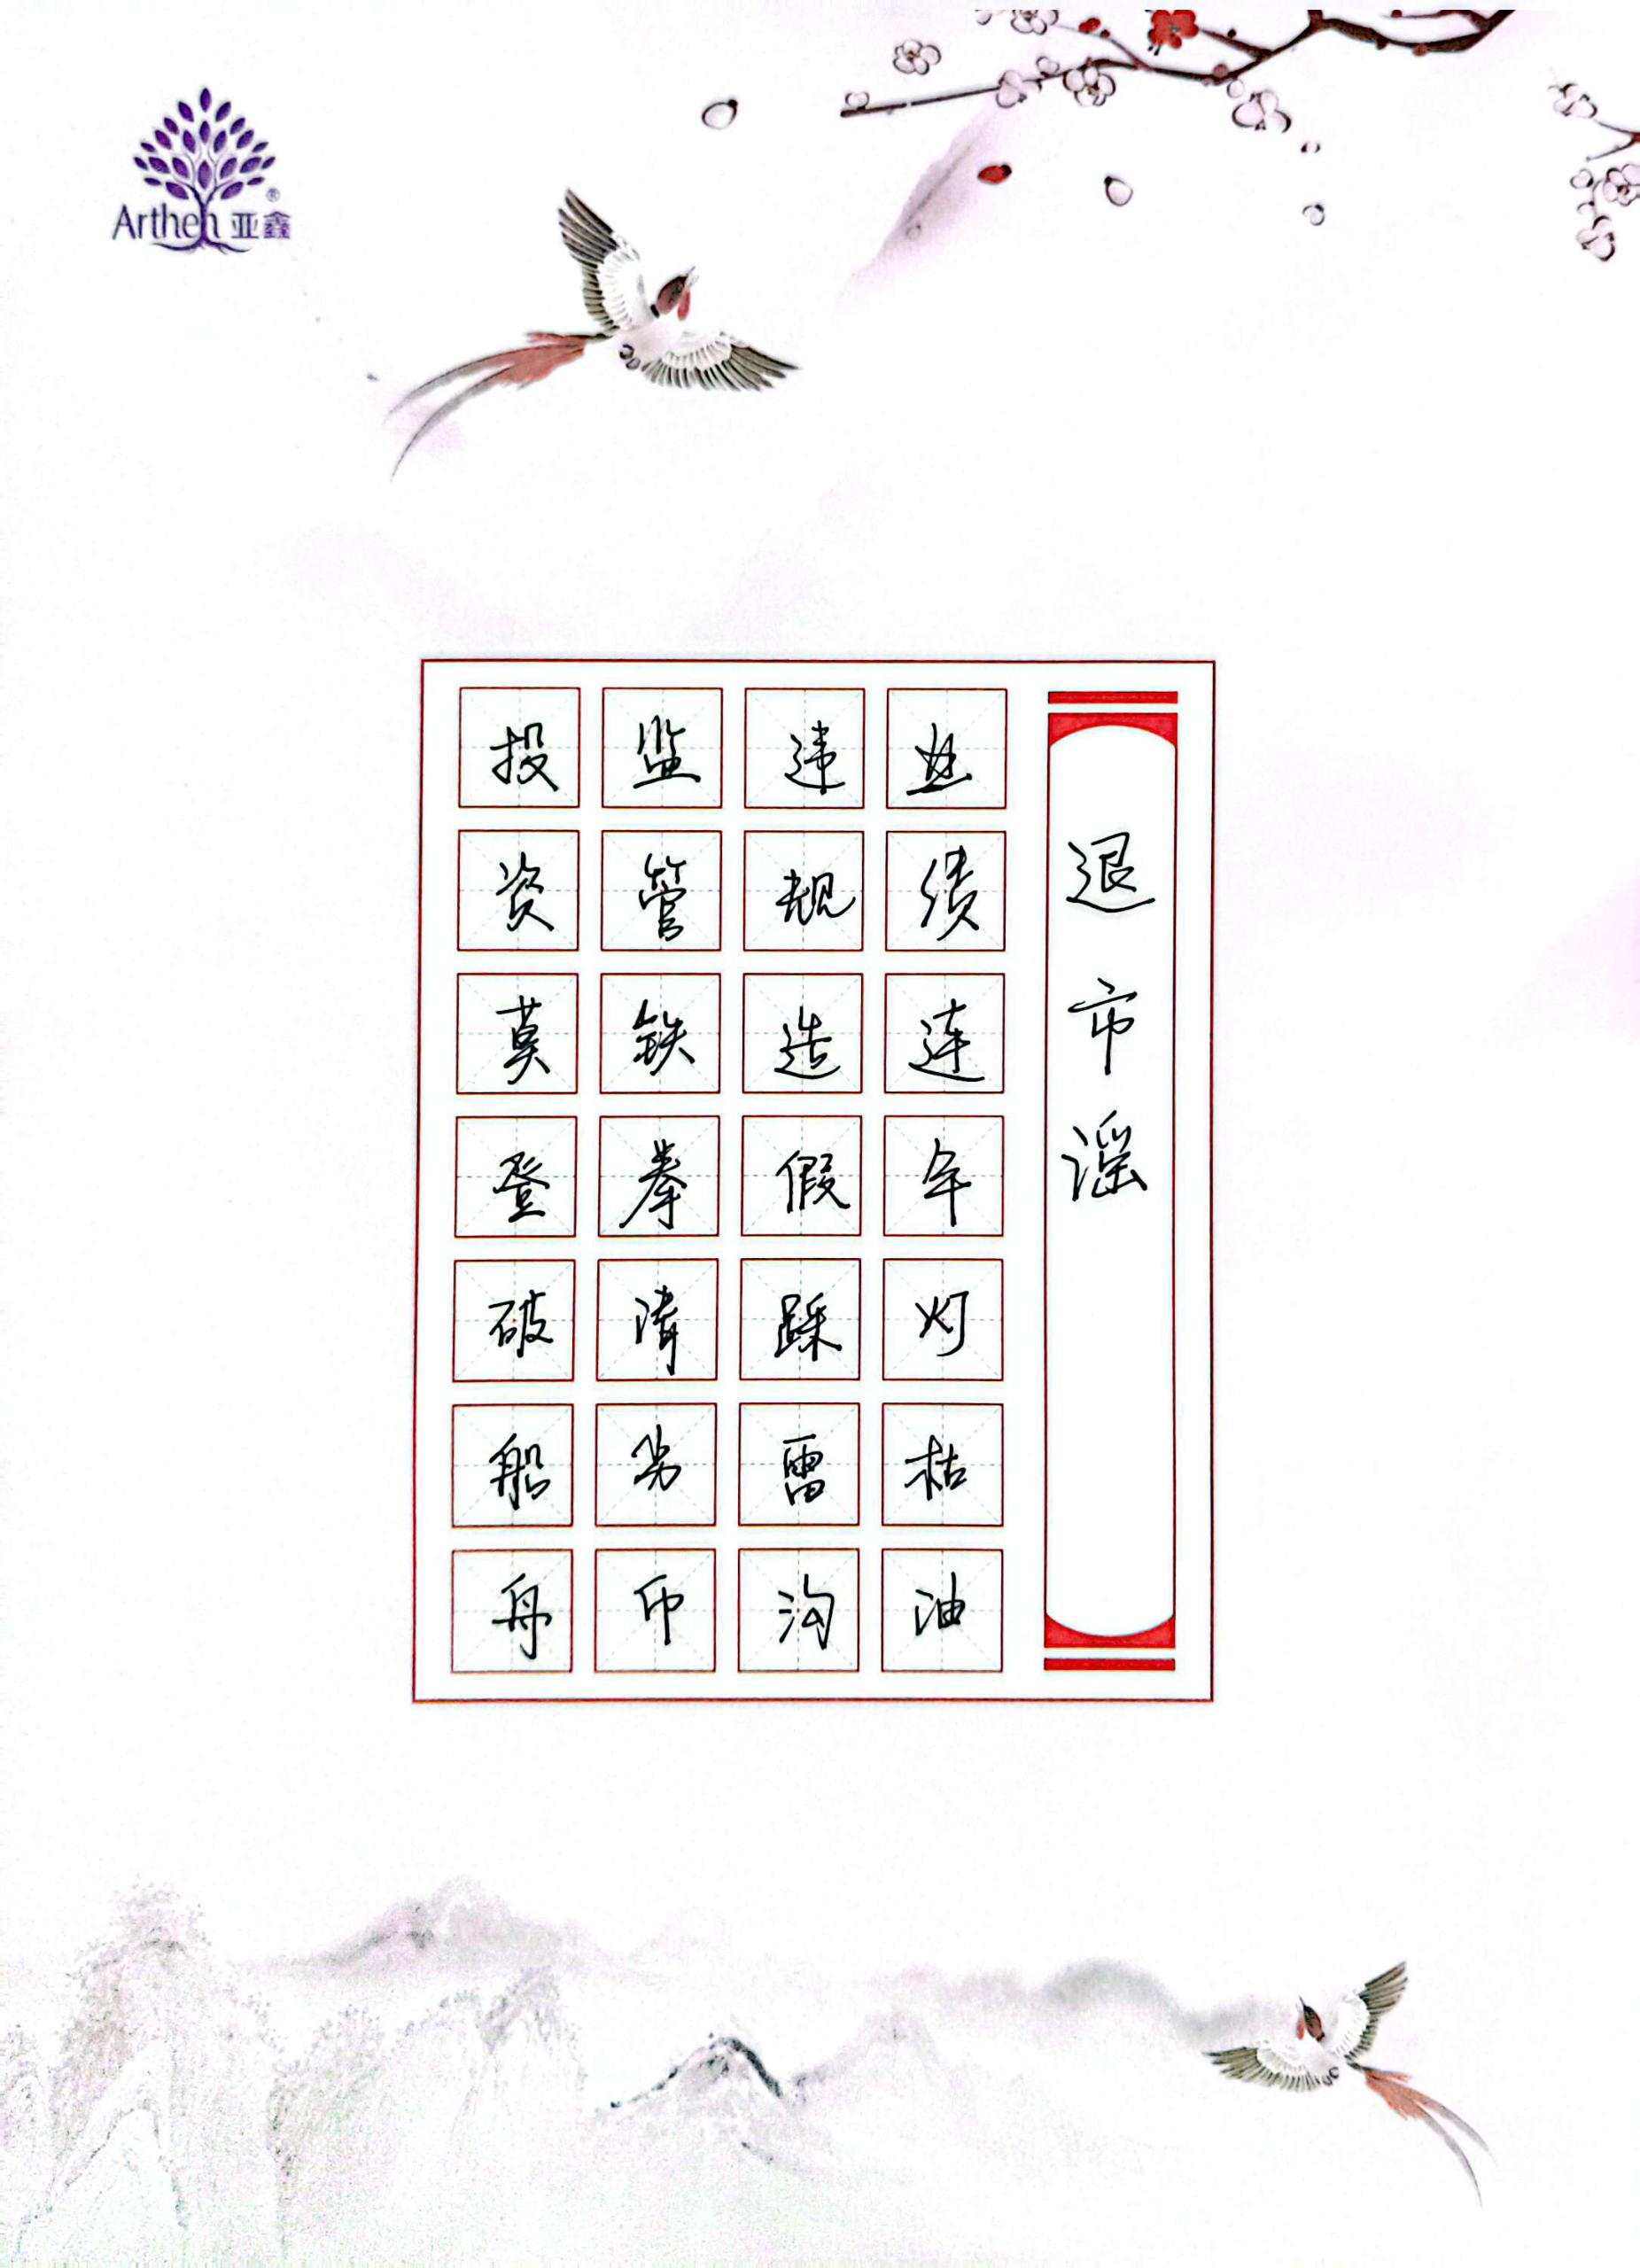 Arthen亚鑫®
退市谣
业绩连年灯枯油
违规造假踩雷沟
监管铁拳清劣币
投资莫登破船舟